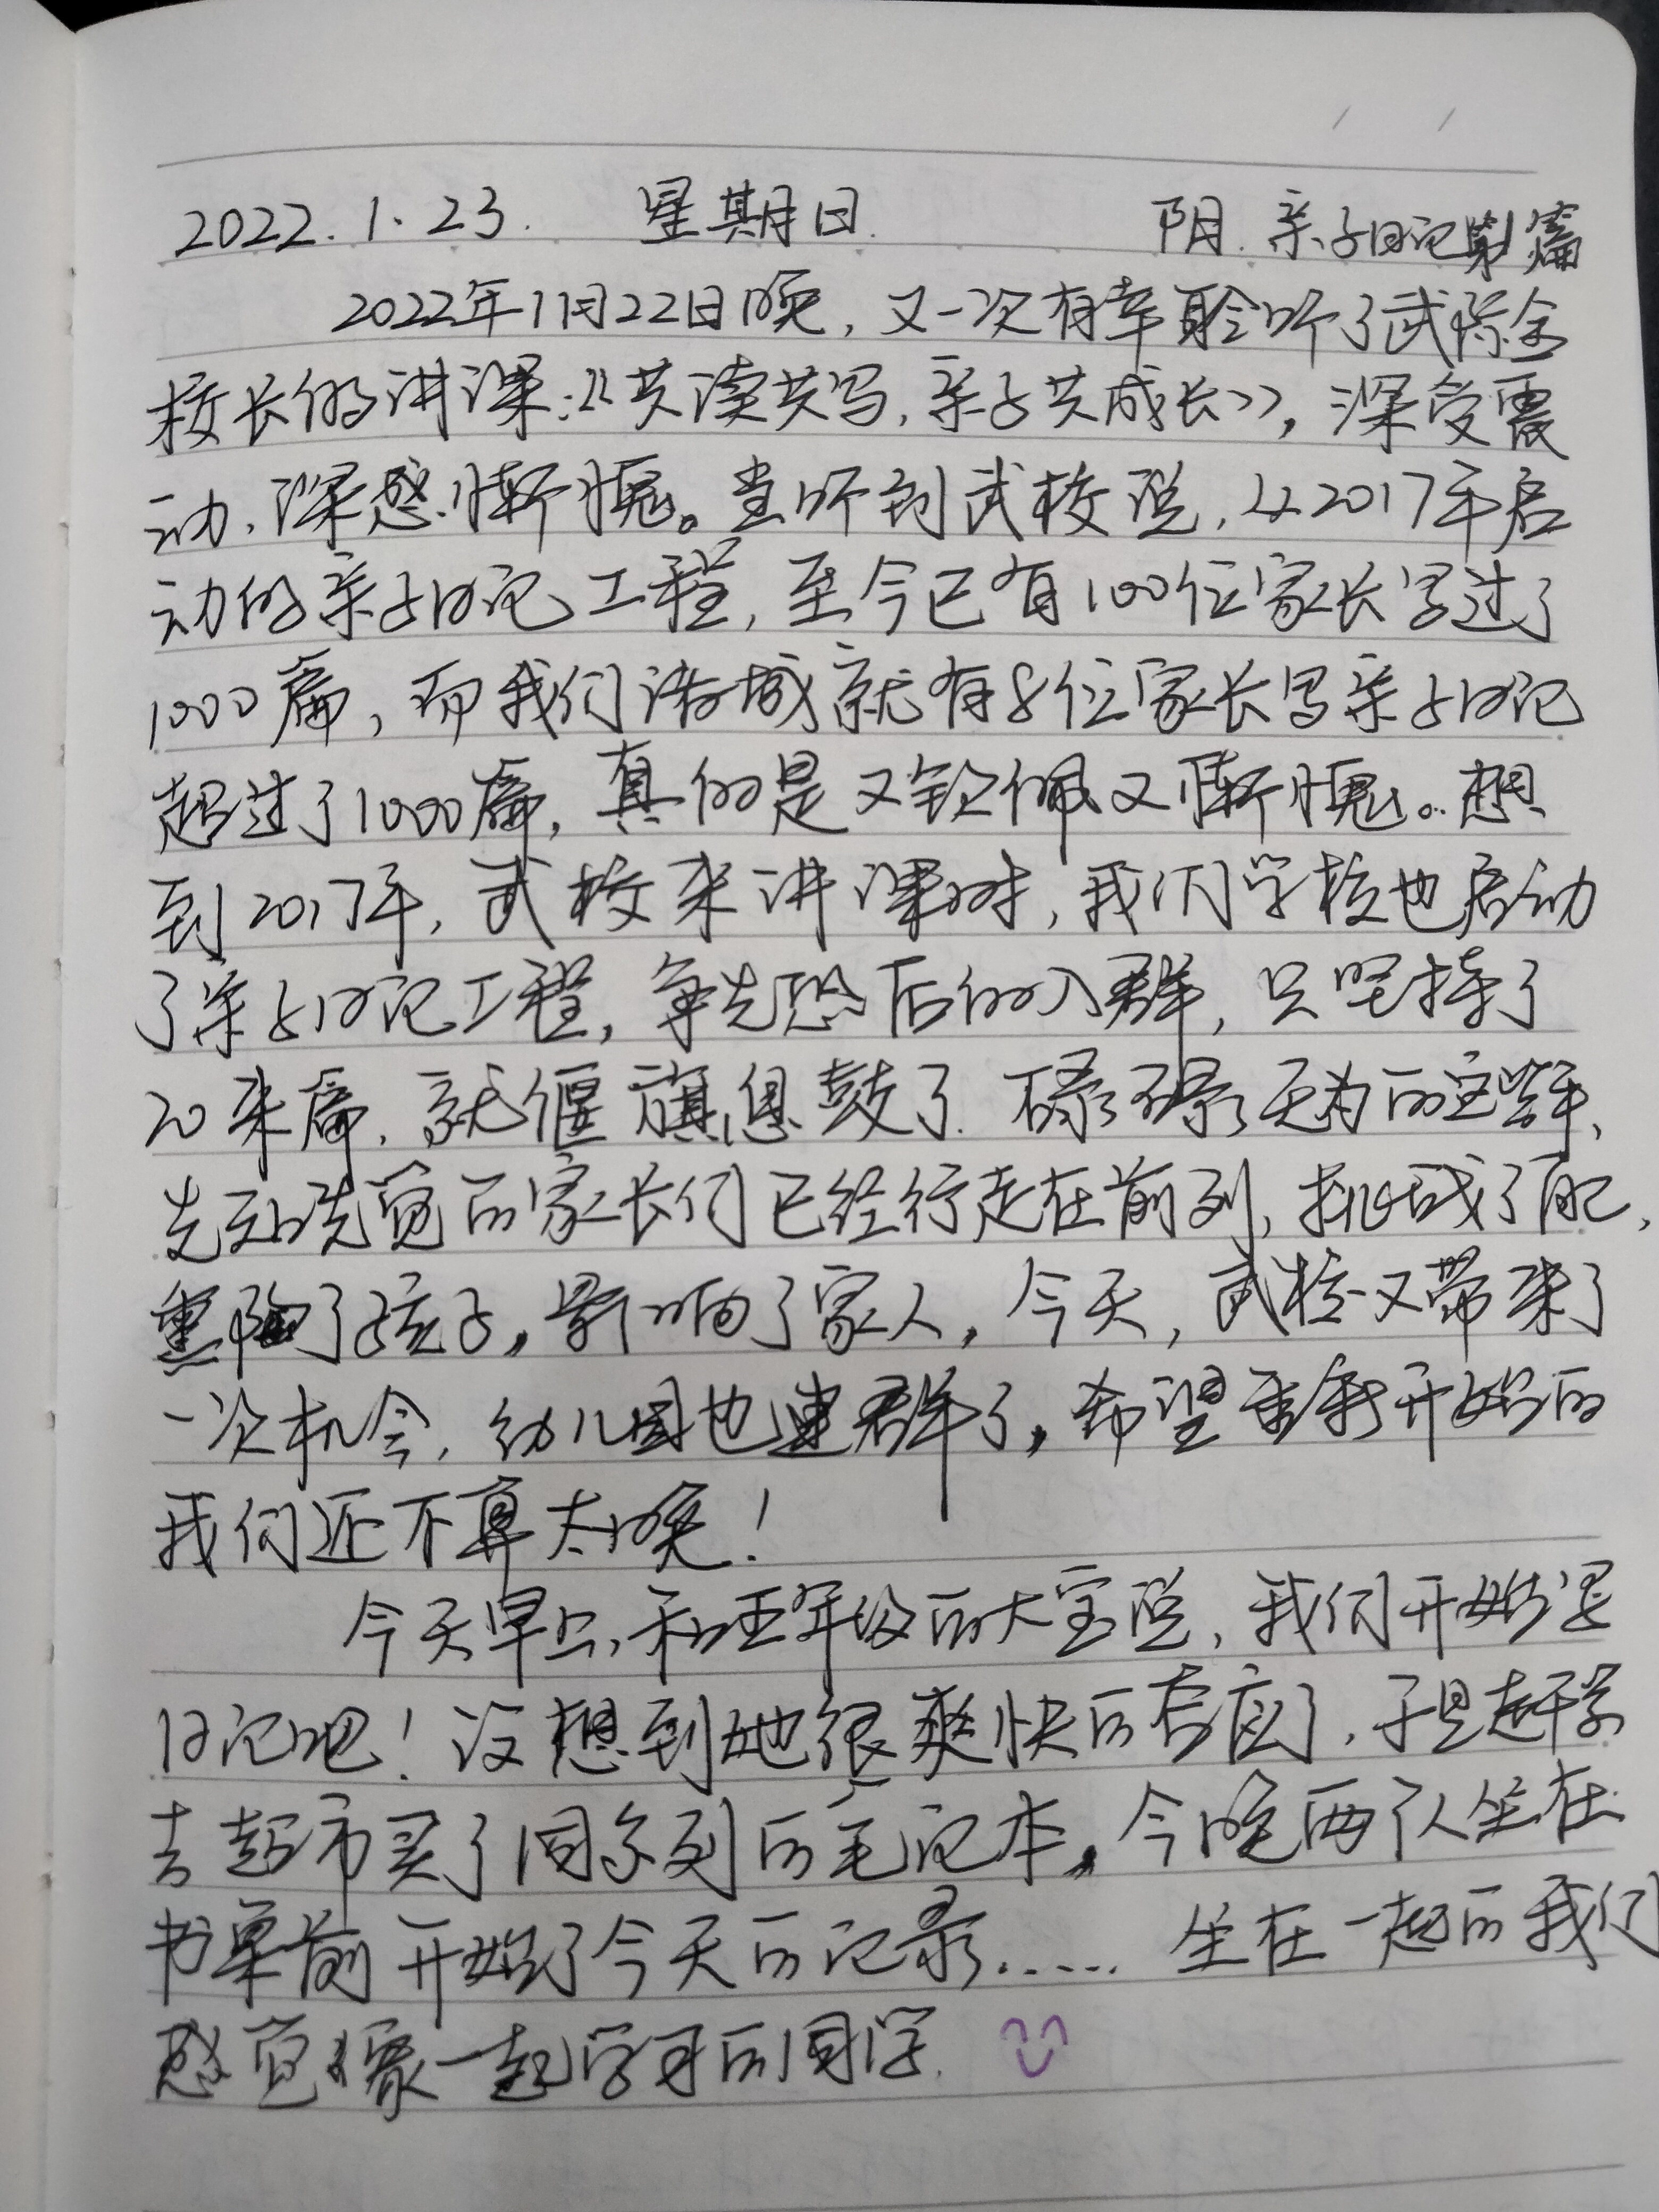 2022.1.23. 星期日. 阴. 亲子日记第1篇
2022年1月22日晚, 又一次有幸聆听了武际金
校长的讲课:《共读共写, 亲子共成长》, 深受震
动, 深感惭愧。当听到武校说, 从2017年启
动的亲子日记工程, 至今已有100位家长写过了
1000篇, 而我们诸城就有8位家长写亲子日记
超过了1000篇, 真的是又钦佩又惭愧。想
到2017年, 武校来讲课时, 我们学校也启动
了亲子日记工程, 争先恐后的入群, 只坚持了
20来篇, 就偃旗息鼓了. 碌碌无为的这些年,
先知先觉的家长们已经行走在前列, 挑战了自己,
熏陶了孩子, 影响了家人, 今天, 武校又带来了
一次机会, 幼儿园也建群了, 希望重新开始的
我们还不算太晚!
今天早上, 和五年级的大宝说, 我们开始写
日记吧! 没想到她很爽快的答应了, 于是赶紧
去超市买了同系列的笔记本, 今晚两个人坐在
书桌前开始了今天的记录...... 坐在一起的我们
感觉像一起学习的同学.